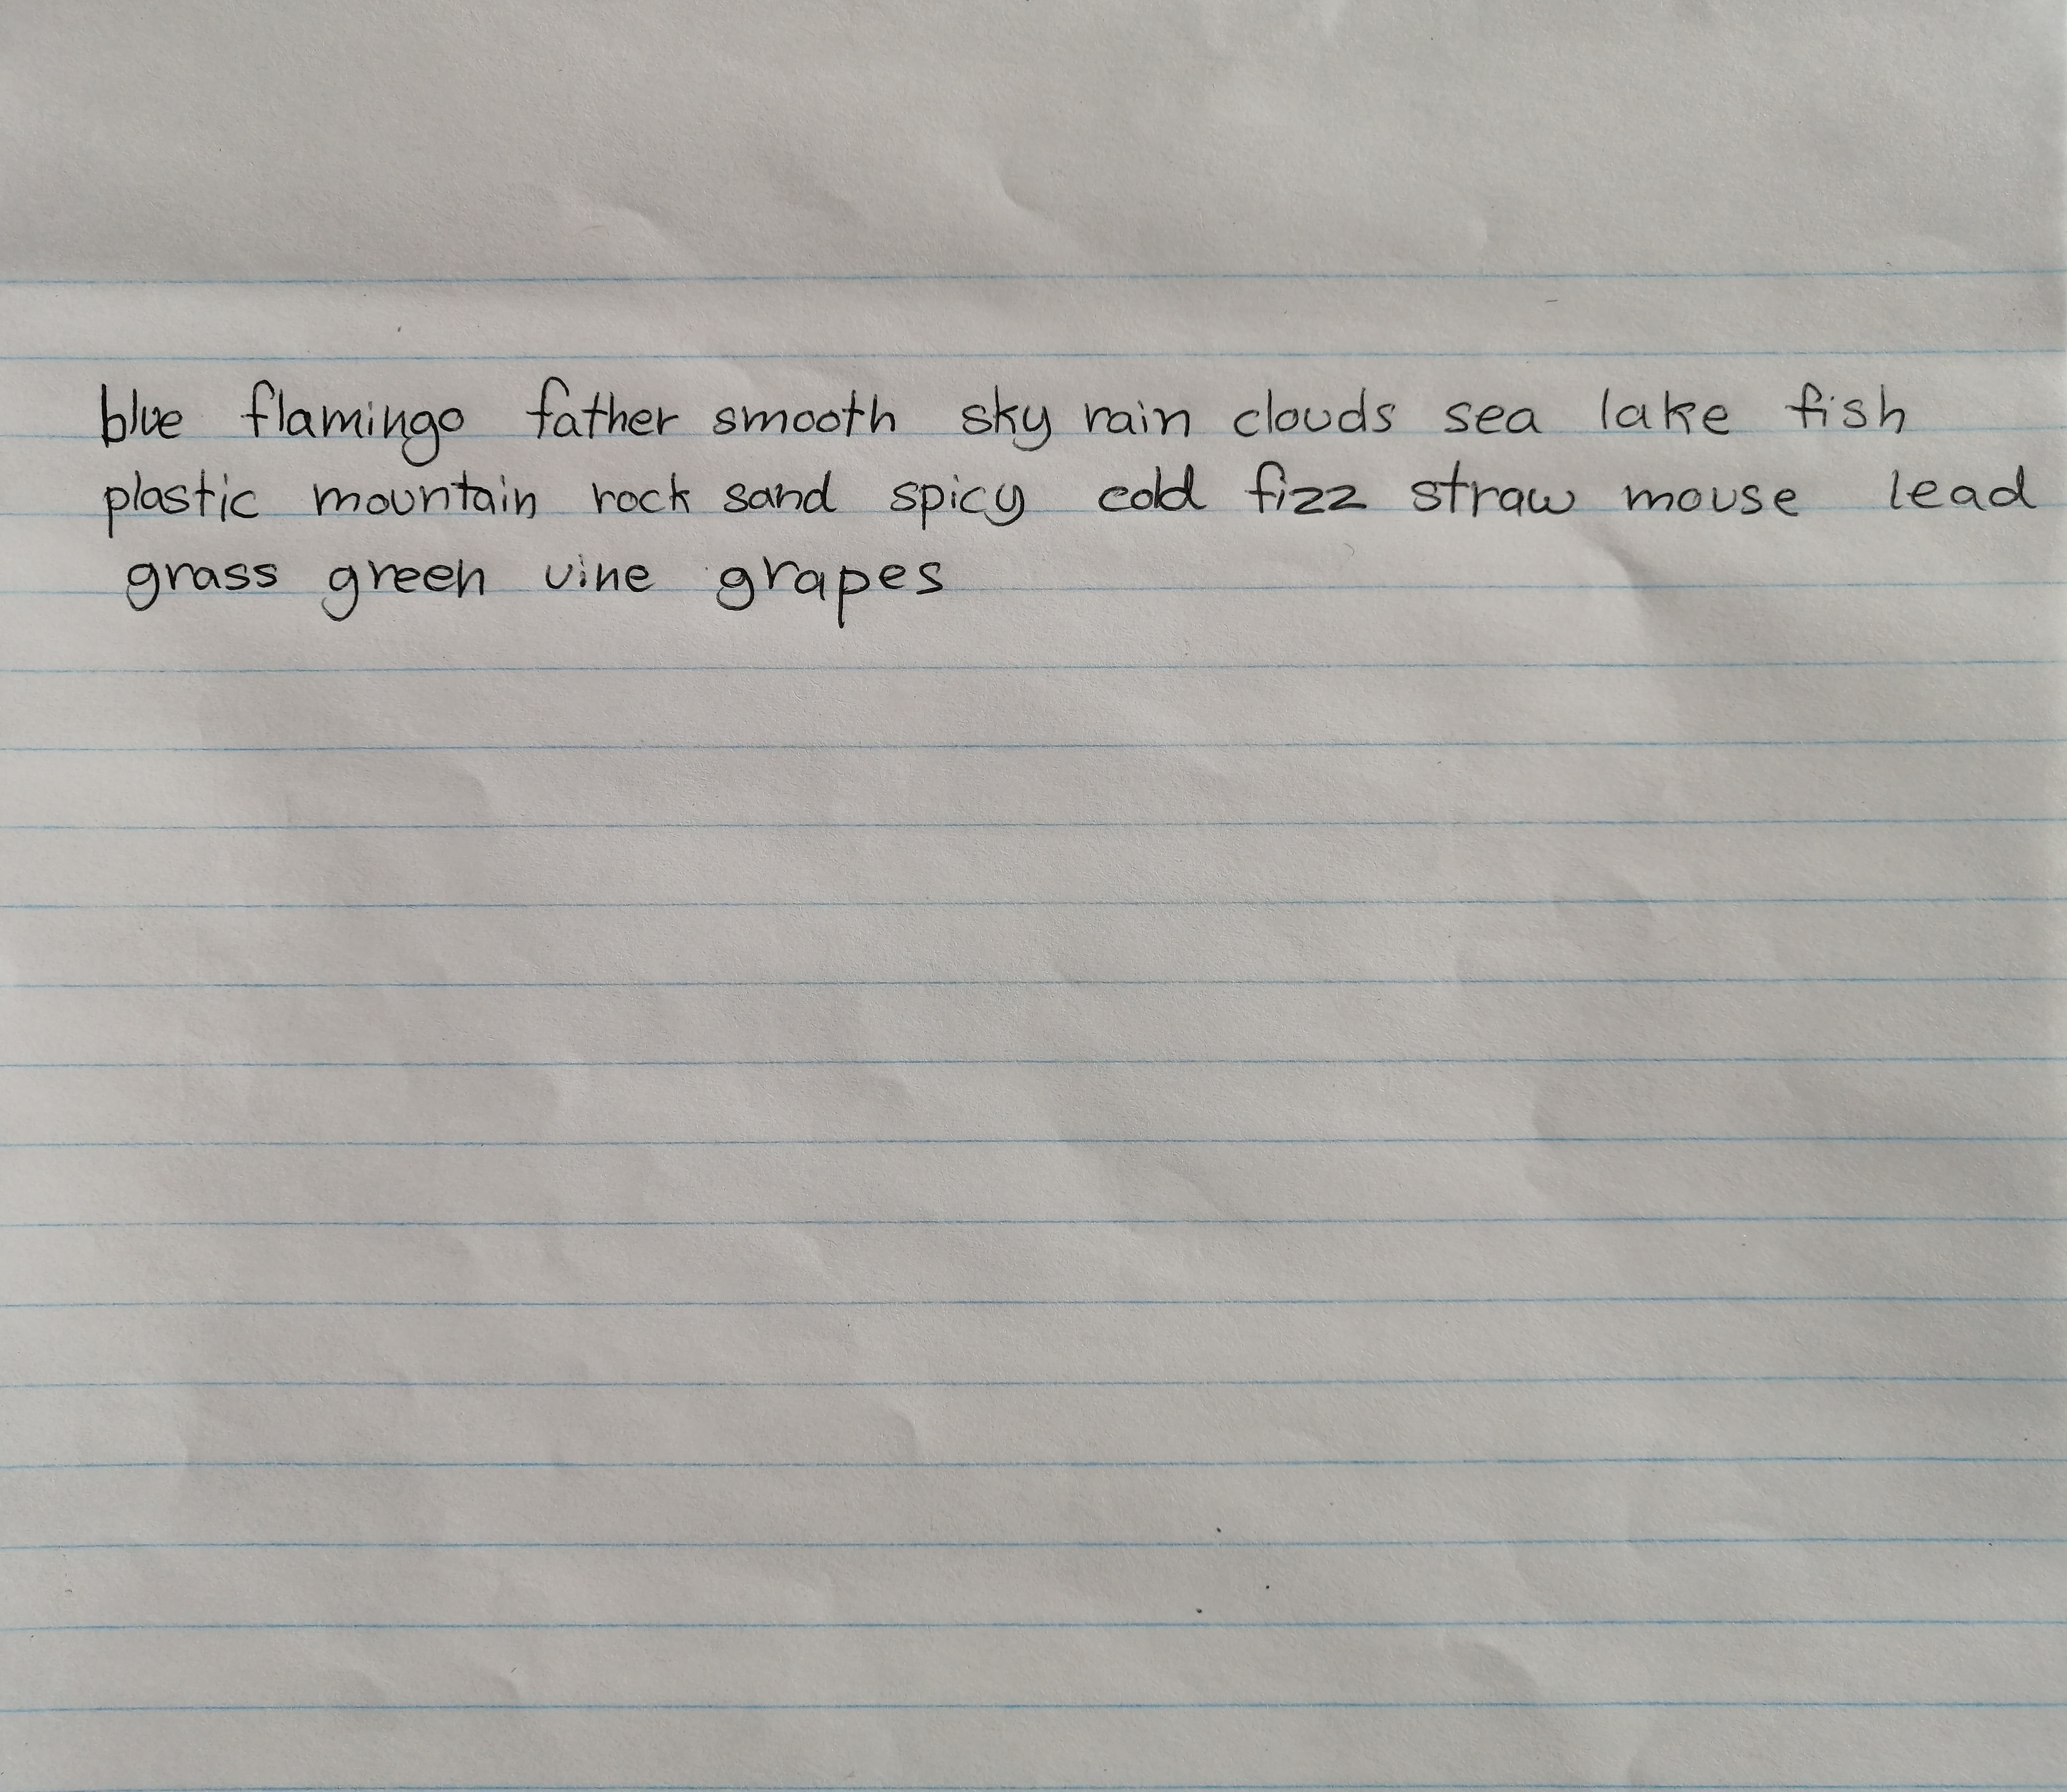 blue flamingo father smooth sky rain clouds sea lake fish
plastic mountain rock sand spicy cold fizz straw mouse lead
grass green vine grapes